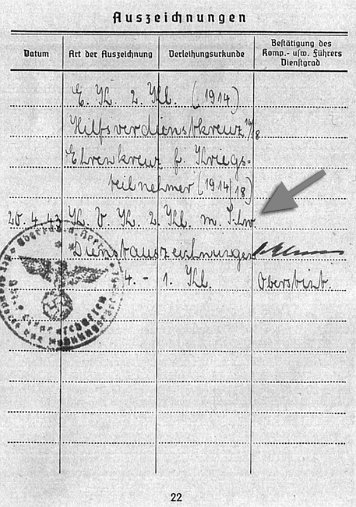 Auszeichnungen
Datum Art der Auszeichnung Verleihungsurkunde Bestätigung des Komp.- usw. Führers Dienstgrad
E. K. 2. Kl. (1914)
Hilfsverdienstkreuz 17/18
Ehrenkreuz f. Kriegs-
teilnehmer (1914/18)
20. 4. 43 K. V. K. 2. Kl. m. Schw.
Dienstauszeichnungen
4. - 1. Kl. Oberstlt.
22